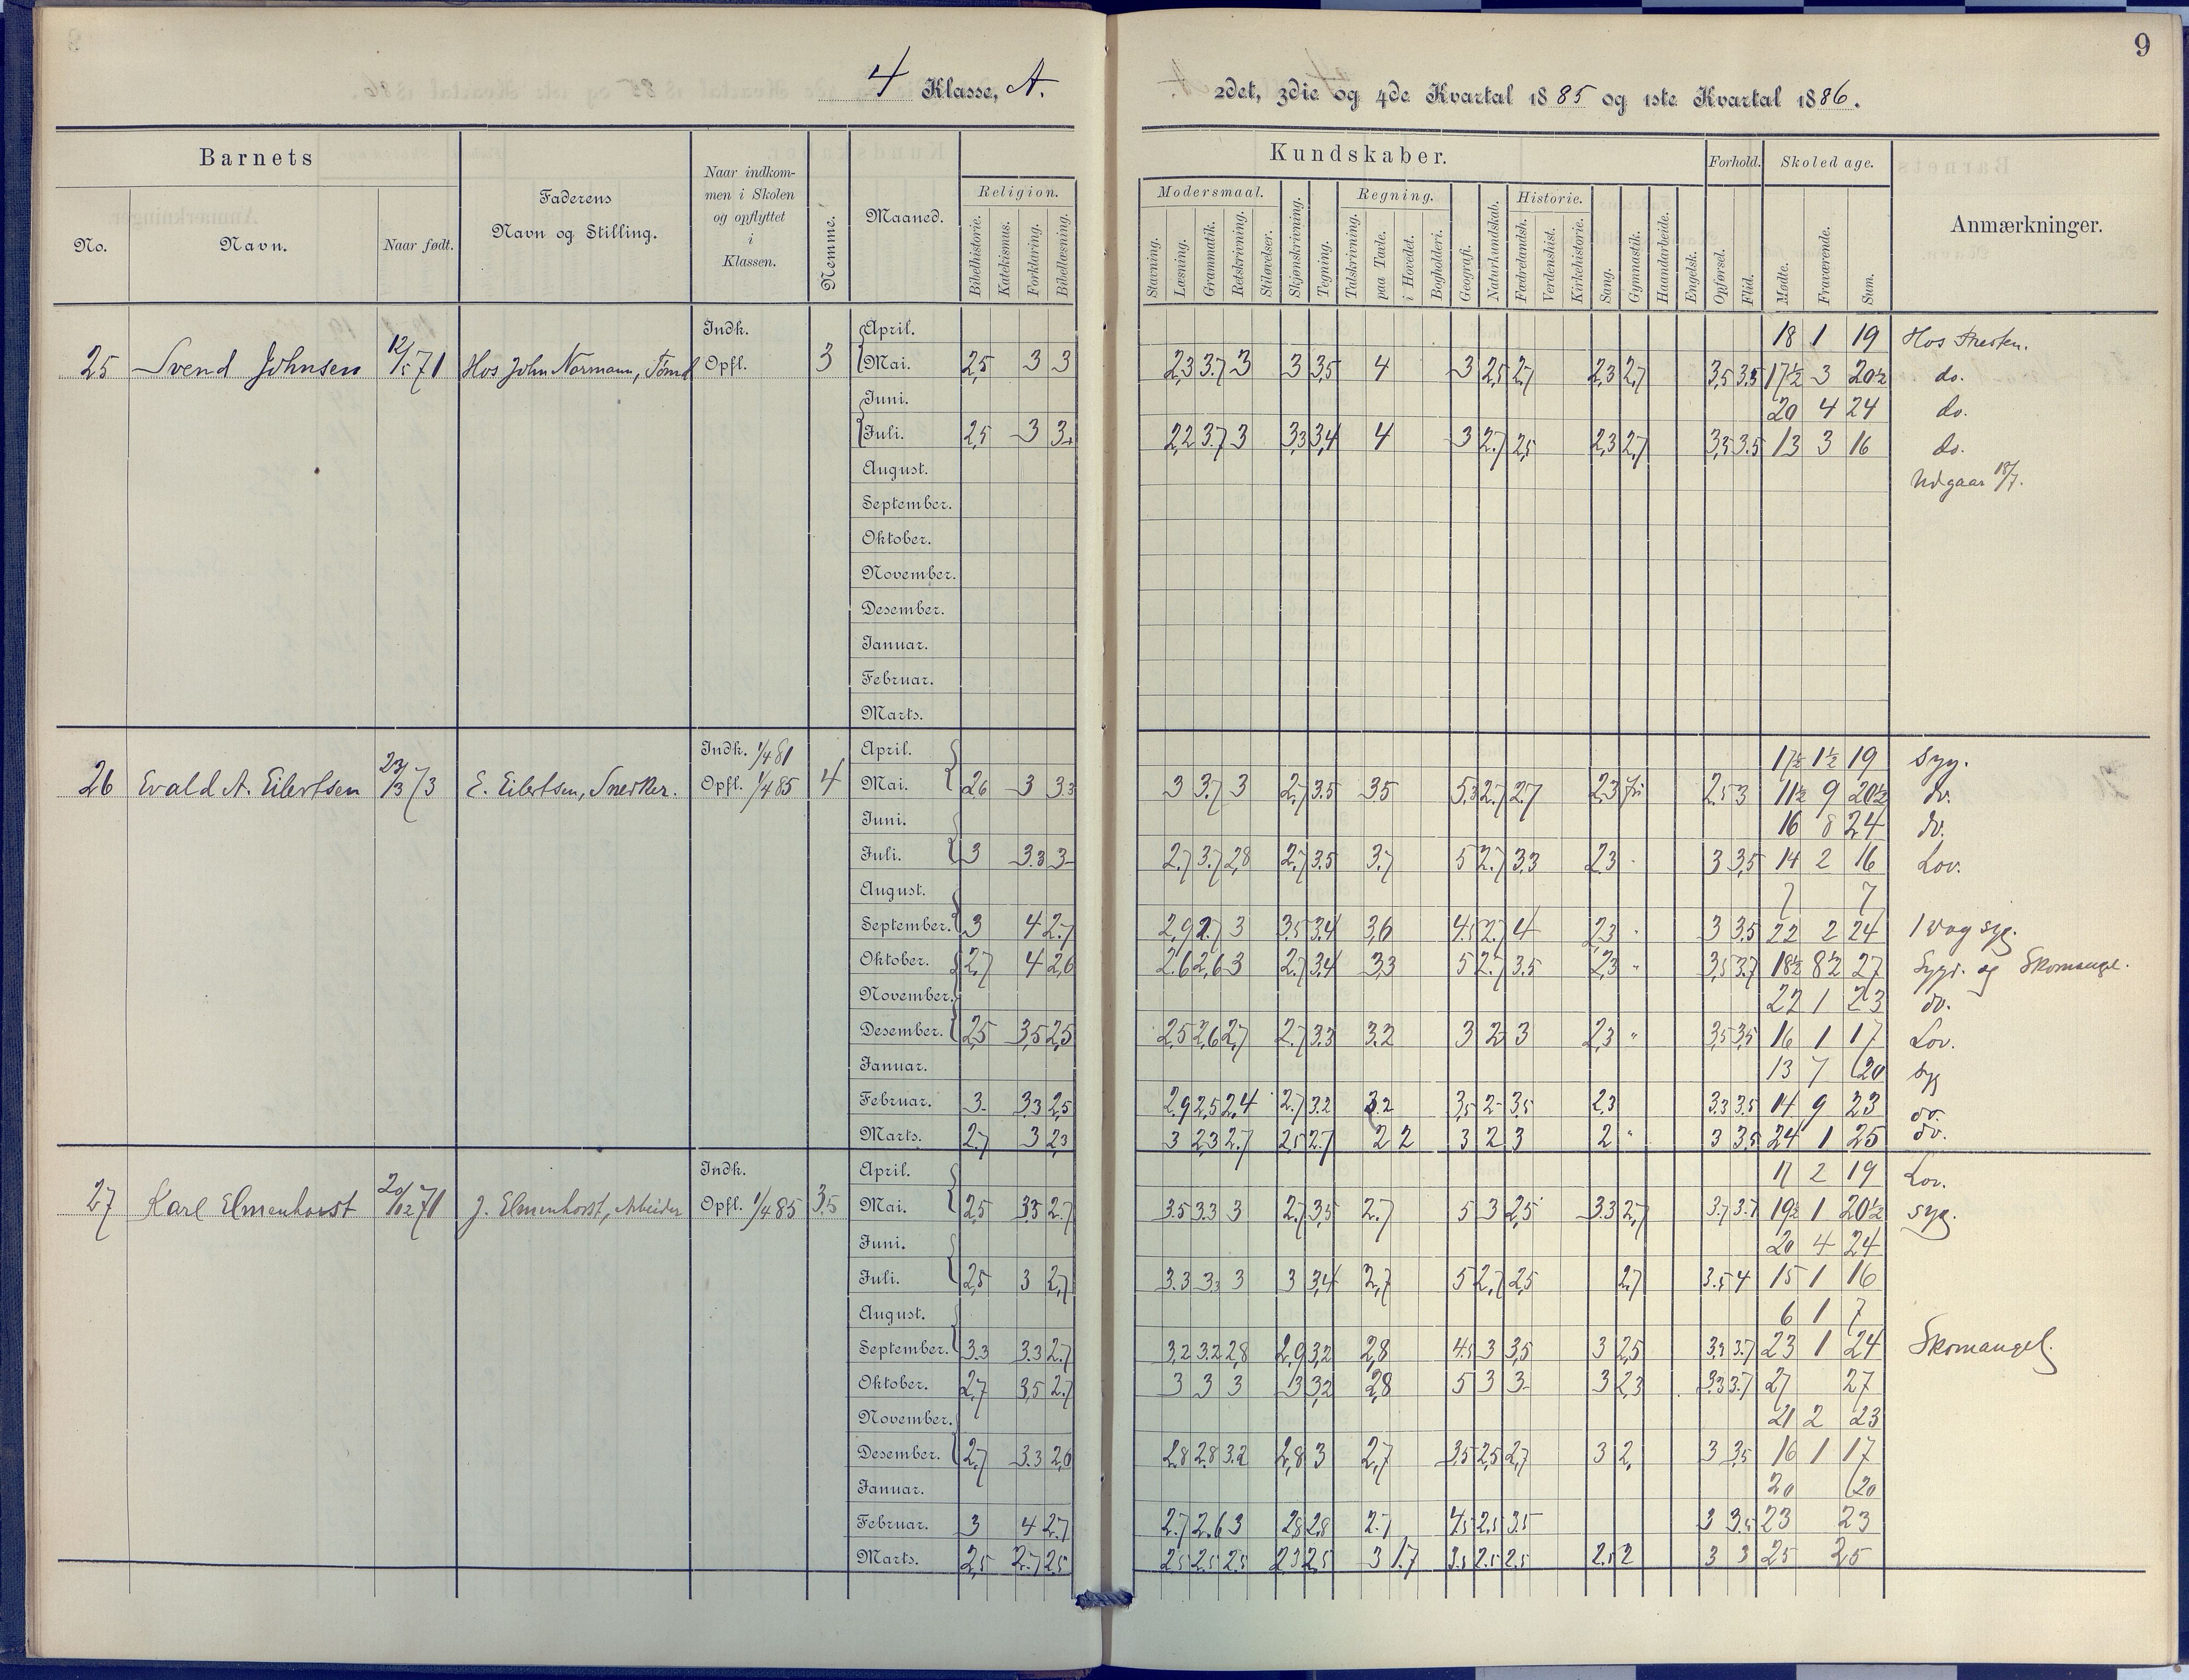 9
4 Klasse, A.
2det, 3die og 4de Kvartal 1885 og 1ste Kvartal 1886.
Barnets
No.
Navn.
Naar født.
Faderens
Navn og Stilling.
Naar indkom-
men i Skolen
og opflyttet
i
Klassen.
Nemme.
Maaned.
Religion.
Bibelhistorie.
Katekismus.
Forklaring.
Bibellæsning.
Kundskaber.
Modersmaal.
Stavning.
Læsning.
Grammatik.
Retskrivning.
Stiløvelser.
Skjønskrivning.
Tegning.
Regning.
Talskrivning.
paa Tavle.
i Hovedet.
Bogholderi.
Geografi.
Naturkundskab.
Historie.
Fædrelandsh.
Verdenshist.
Kirkehistorie.
Sang.
Gymnastik.
Haandarbeide.
Engelsk.
Forhold.
Opførsel.
Flid.
Skoledage.
Mødte.
Fraværende.
Sum.
Anmærkninger.
25 Svend Johnsen 12/5 71 Hos John Normann, Tømd
Indk.
Opfl. 3
April. 18 1 19
Mai. 2,5 3 3 2,3 3.7 3 3 3,5 4 3 2,5 2,7 2,3 2,7 3,5 3.5 17½ 3 20½ do.
Juni. 20 4 24 do.
Juli. 2,5 3 3. 2,2 3.7 3 3,3 3,4 4 3 2.7 2,5 2,3 2,7 3,5 3.5 13 3 16 do.
August. Udgaar 18/7.
September.
Oktober.
November.
Desember.
Januar.
Februar.
Marts.
26 Evald A. Eilertsen 23/3 73 E. Eilertsen, Snedker.
Indk. 1/4 81
Opfl. 1/4 85 4
April. 17½ 1½ 19 Syg.
Mai. 26 3 3.3 3 3.7 3 2,7 3.5 35 5,3 2.7 2.7 2.3 fri 2.5 3 11½ 9 20½ do.
Juni. 16 8 24 do.
Juli. 3 3.3 3- 2.7 3.7 2,8 2.7 3.5 3.7 5 2.7 3,3 2.3 3 3,5 14 2 16 Lov.
August. 7 7
September. 3 4 2.7 2,9 2.7 3 3.5 3.4 3,6 4.5 2.7 4 2,3 " 3 3,5 22 2 24 1 dag syg.
Oktober. 2,7 4 2,6 2.6 2,6 3 2.7 3,4 3,3 5 2.7 3.5 2,3 " 3,5 3.7 18½ 8½ 27 Sygd. og Skomangel.
November. 22 1 23 do.
Desember. 2,5 3,5 2,5 2,5 2,6 2,7 2.7 3.3 3.2 3 2- 3 2,3 " 3,5 3,5 16 1 17 Lov.
Januar. 13 7 20 Syg
Februar. 3. 3.3 2,5 2.9 2,5 2,4 2.7 3.2 3.2 3,5 2- 3,5 2.3 3.3 3.5 14 9 23 do.
Marts. 2.7 3 2,3 3 2,3 2.7 2,5 2.7 2 2 3 2 3 2 " 3 3,5 24 1 25 do.
27 Karl Elmenhorst 20/12 71 J. Elmenhorst, Arbeider
Indk.
Opfl. 1/4 85 3.5
April. 17 2 19 Lov.
Mai. 2,5 3.5 2.7 3.5 3.3 3 2.7 3,5 2.7 5 3 2,5 3.3 2,7 3.7 3.7 19½ 1 20½ syg.
Juni. 20 4 24
Juli. 2,5 3 2,7 3.3 3,3 3 3 3,4 2,7 5 2,7 2,5 2,7 3.5 4 15 1 16
August. 6 1 7
September. 3.3 3.3 2.7 3,2 3.2 2,8 2,9 3,2 2,8 4.5 3 3,5 3 2,5 3,3 3.7 23 1 24 Skomangel.
Oktober. 2,7 3,5 2.7 3 3 3 3 3,2 2,8 5 3 3- 3 2,3 3.3 3.7 27 27
November. 21 2 23
Desember. 2,7 3.3 2,6 2,8 2.8 3.2 2,8 3 2,7 3,5 2,5 2,7 3 2, 3 3,5 16 1 17
Januar. 20 20
Februar. 3 4 2.7 2.7 2.6 3 2,8 2,8 2.7 4,5 2,5 3.5 3 3.5 23 23
Marts. 2,5 2.7 2,5 2,5 2,5 2.5 2,3 2,5 3 1.7 3.5 2.5 2.5 2.5 2 3 3 25 25